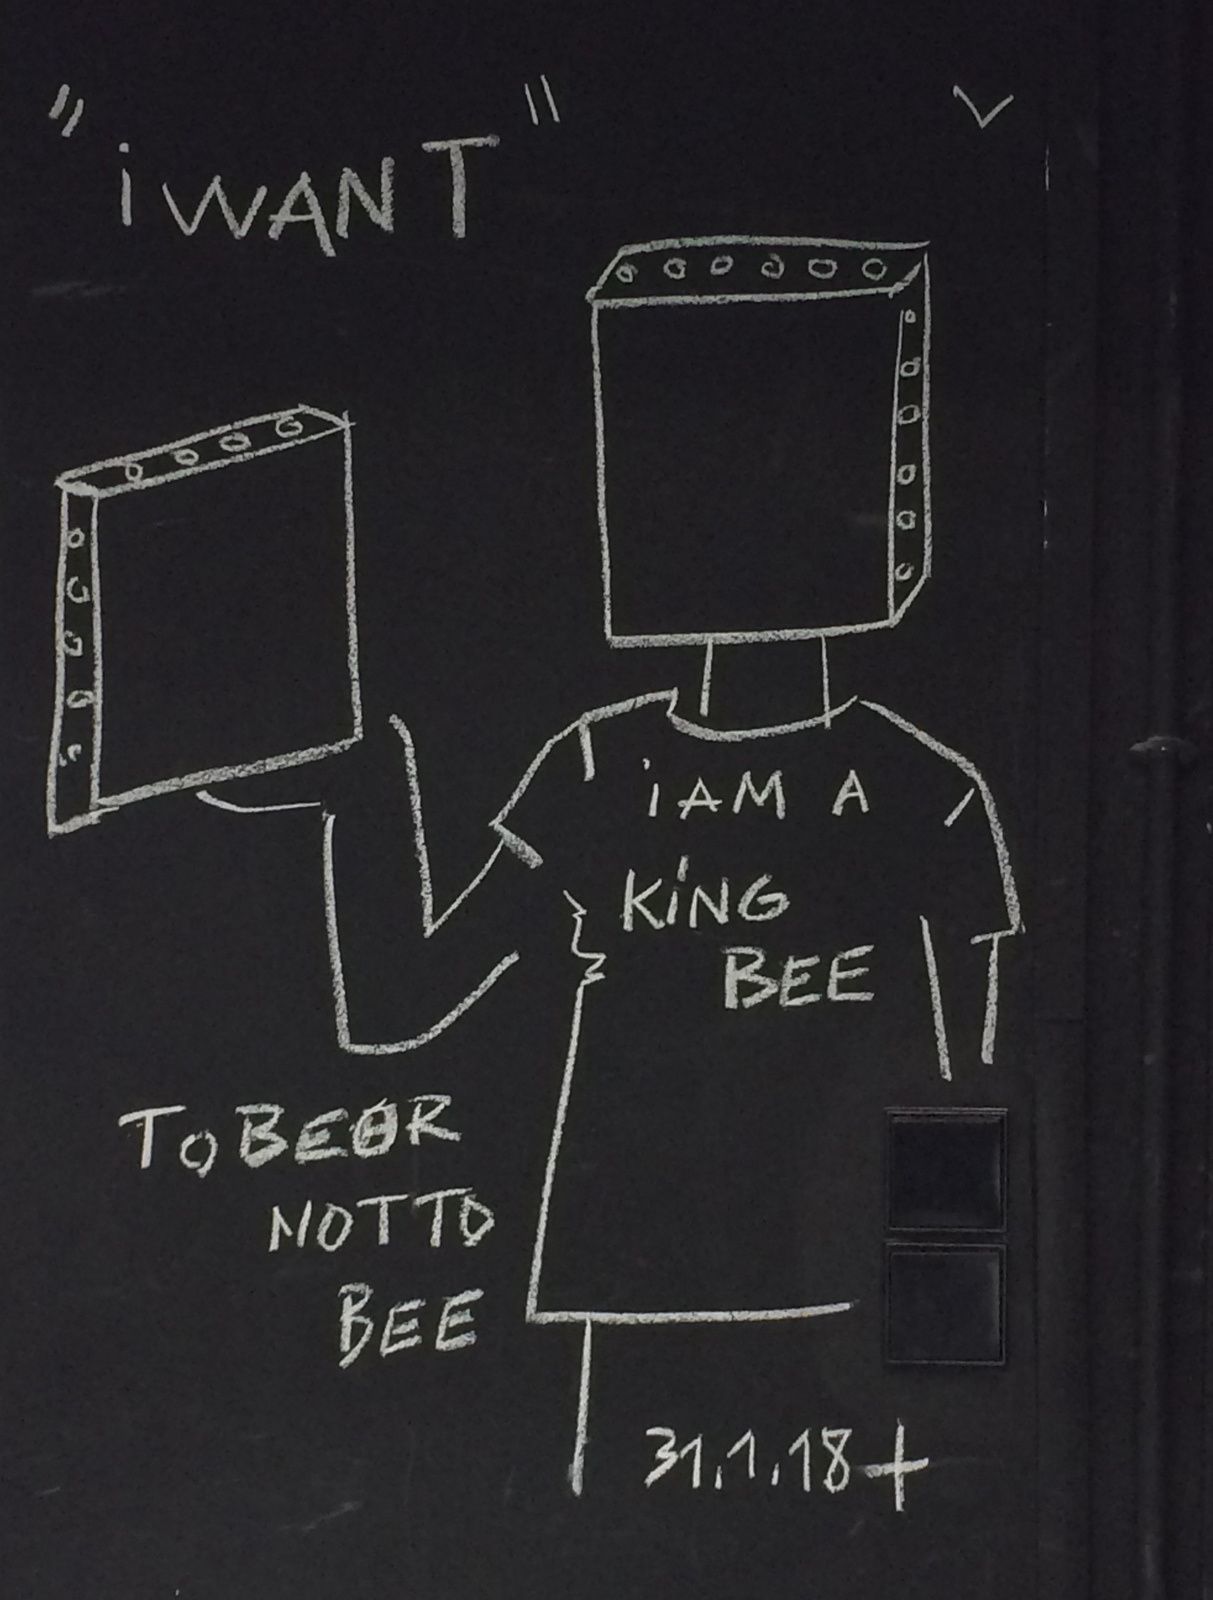 "iWANT"
iAM A
KiNG
BEE
ToBEOR
NOTTO
BEE
31.1.18+